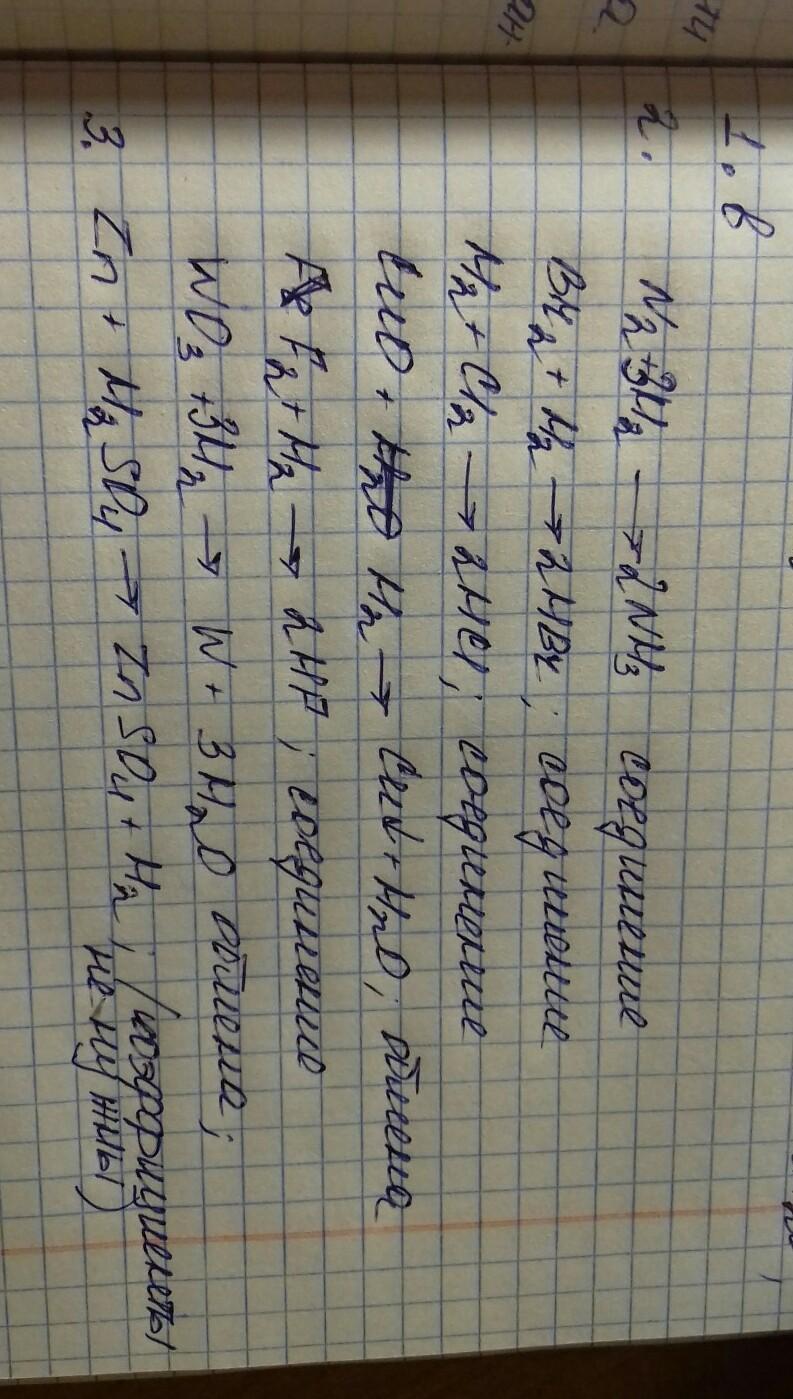 1. в
2. N₂+3H₂ → 2NH₃ соединение
Br₂ + H₂ → 2HBr; соединение
H₂ + Cl₂ → 2HCl; соединение
CuO + H₂ → Cu + H₂O; обмена
F₂ + H₂ → 2HF; соединение
WO₃ + 3H₂ → W + 3H₂O обмена;
3. Zn + H₂SO₄ → ZnSO₄ + H₂; (коэффициенты
не нужны)